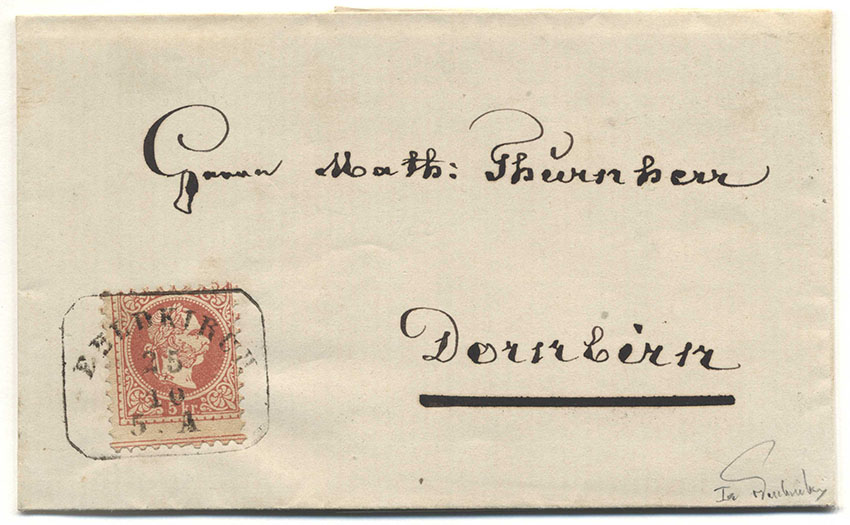 Herrn Math: Thurnherr
Dornbirn
FELDKIRCH
25
10
5 A
5